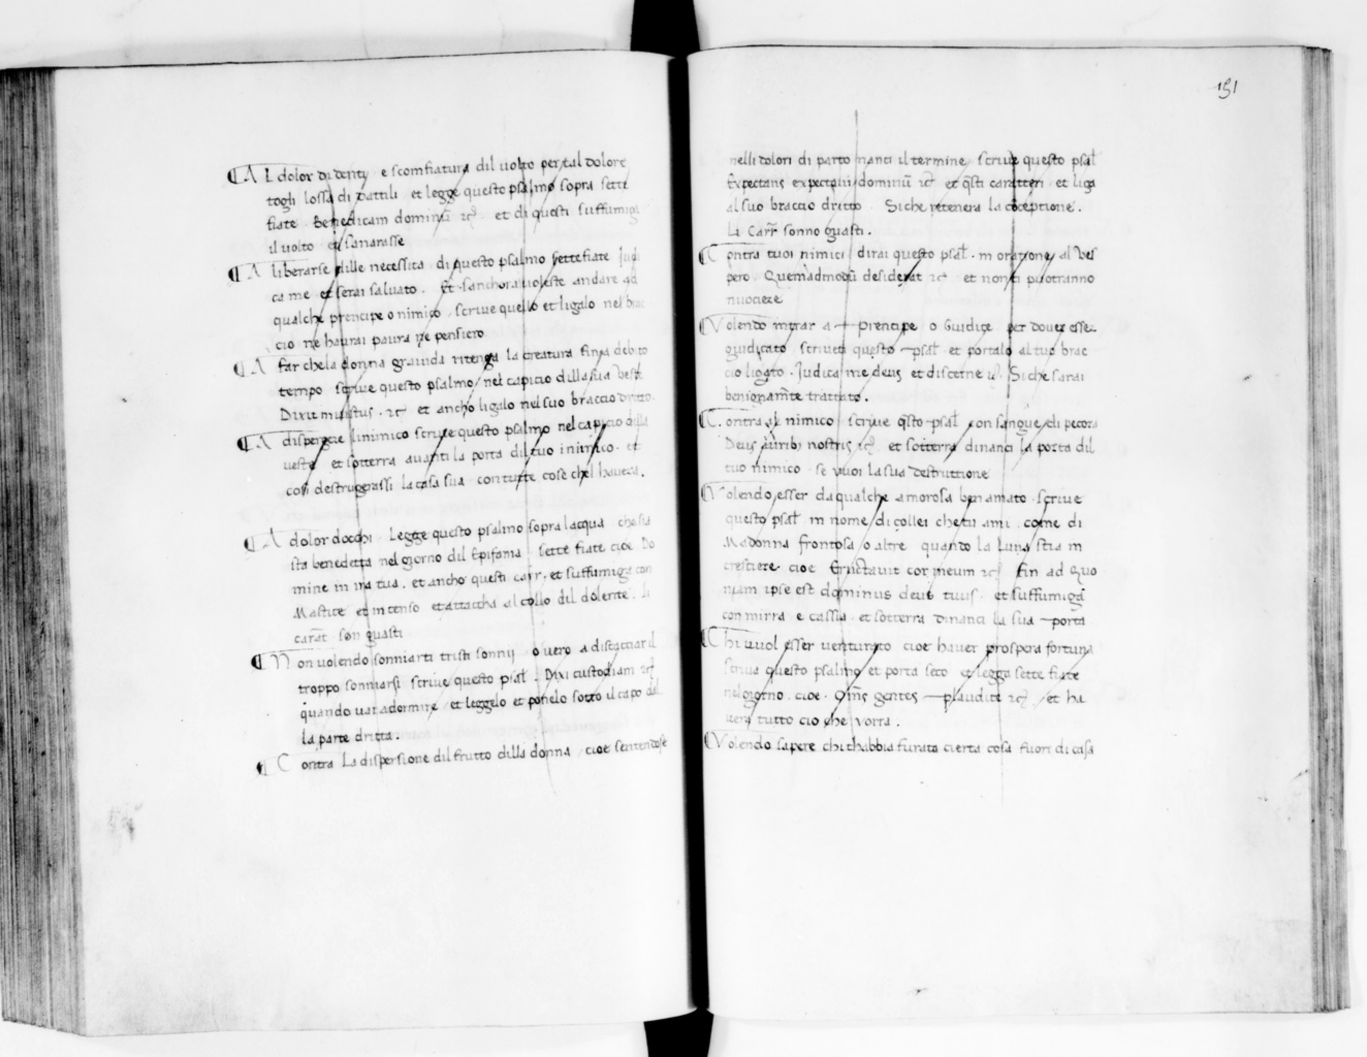 ¶ Al dolor di denti e scomfiatura dil uolto per tal dolore
togli lossa di Dattili et legge questo psalmo sopra sette
fiate Benedicam dominū ⁊c̃ et di questi suffumiga
il uolto et sanarasse
¶ A liberarse dille necessita di questo psalmo sette fiate Judi
ca me et serai saluato. Et sanchora uoleste andare ad
qualche prencipe o nimico scriue quello et ligalo nel brac
cio ne haurai paura ne pensiero
¶ A far chela donna grauida ritenga la creatura finza debito
tempo scriue questo psalmo nel capicio dilla sua Veste
Dixit ⁊c̃ et ancho ligalo nel suo braccio dritto.
¶ A disperdere linimico scriue questo psalmo nel capicio dilla
ueste et sotterra auanti la porta dil tuo inimico. et
cosi destrugerassi la casa sua con tutte cose chel hauera.
¶ A dolor docchi Legge questo psalmo sopra lacqua che sia
sta benedetta nel giorno dil Epifania sette fiate cioe Do
mine in ira tua. et ancho questi carr̃. et suffumiga con
Mastice et incenso et attaccha al collo dil dolente. li
carat̃ son guasti
¶ Non uolendo sonniarti tristi sonnij o uero a distacciar il
troppo sonniarsi scriue questo psal̃. Dixi custodiam ⁊c̃
quando uai adormire et leggelo et ponelo sotto il capo dal
la parte dritta.
¶ Contra La dispersione dil frutto dilla donna cioe sentendose
151
nelli dolori di parto nanci il termine scriue questo psal̃
Expectans expectaui dominū ⁊c̃ et q̃sti caratteri et liga
al suo braccio dritto Si che retenera la cōceptione.
Li Carr̃ sonno guasti.
¶ Contra tuoi nimici dirai questo psal̃. in oratione al Ves
pero Quemadmodū desiderat ⁊c̃ et non ti puotranno
nuocere
¶ Volendo intrar a Prencipe o Giudice per douer esser
giudicato scriueti questo psal̃ et portalo al tuo brac
cio ligato. Judica me deus et discerne Si che sarai
benignam̃te trattato.
¶ Contra al nimico scriue q̃sto psal̃ con sangue di pecora
Deus aurib; nostris ⁊c̃ et sotterra dinanci la porta dil
tuo nimico se vuoi la sua destruttione
¶ Volendo esser da qualche amorosa ben amato scriue
questo psal̃ in nome di collei che tu ami come di
Madonna frontosa o altre quando la Luna stia in
crescere cioe Eructauit cor meum ⁊c̃ fin ad Quo
niam ipse est dominus deus tuus. et suffumiga
con mirra e cassia et sotterra dinanci la sua porta
¶ Chi vuol esser uenturato cioe hauer prospera fortuna
scriua questo psalmo et porta seco et legga sette fiate
nel giorno. cioe. Om̃s gentes plaudite ⁊c̃ et ha
uera tutto cio che vorra.
¶ Volendo sapere chi thabbia furato cierta cosa fuori di casa